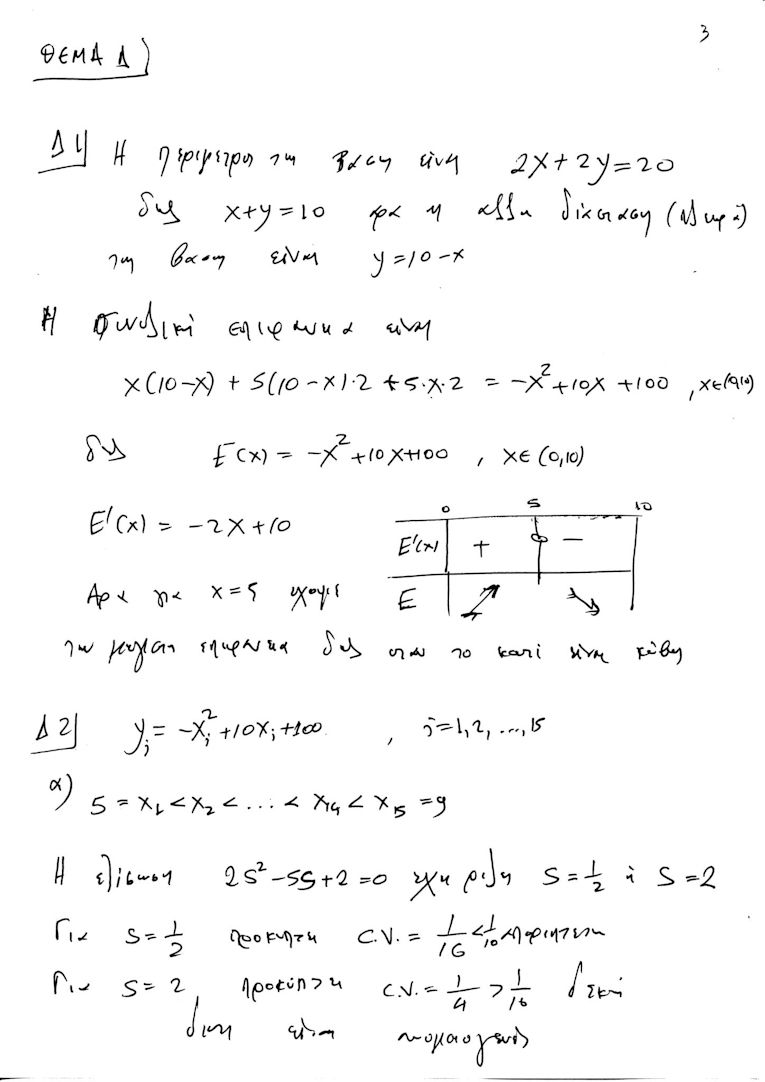 3
ΘΕΜΑ Δ)
Δ1) Η περίμετρος της βάσης είναι 2x+2y=20
δηλ x+y=10 άρα η άλλη διάσταση (πλευρά)
της βάσης είναι y=10-x
Η συνολική επιφάνεια είναι
x(10-x) + 5(10-x)·2 + 5·x·2 = -x²+10x+100, x∈(0,10)
δηλ E(x) = -x²+10x+100, x∈(0,10)
E'(x) = -2x+10
0 5 10
E'(x) + 0 -
E ↗ ↘
Άρα για x=5 έχουμε
την μέγιστη επιφάνεια δηλ όταν το κουτί είναι κύβος
Δ2) yᵢ = -xᵢ²+10xᵢ+100, i=1,2,...,15
α) 5 = x₁ < x₂ < ... < x₁₄ < x₁₅ = 9
Η εξίσωση 2s²-5s+2=0 έχει ρίζες s=1/2 ή s=2
Για s=1/2 προκύπτει C.V. = 1/16 < 1/10 απορρίπτεται
Για s=2 προκύπτει C.V. = 1/4 > 1/10 δεκτή
διότι είναι